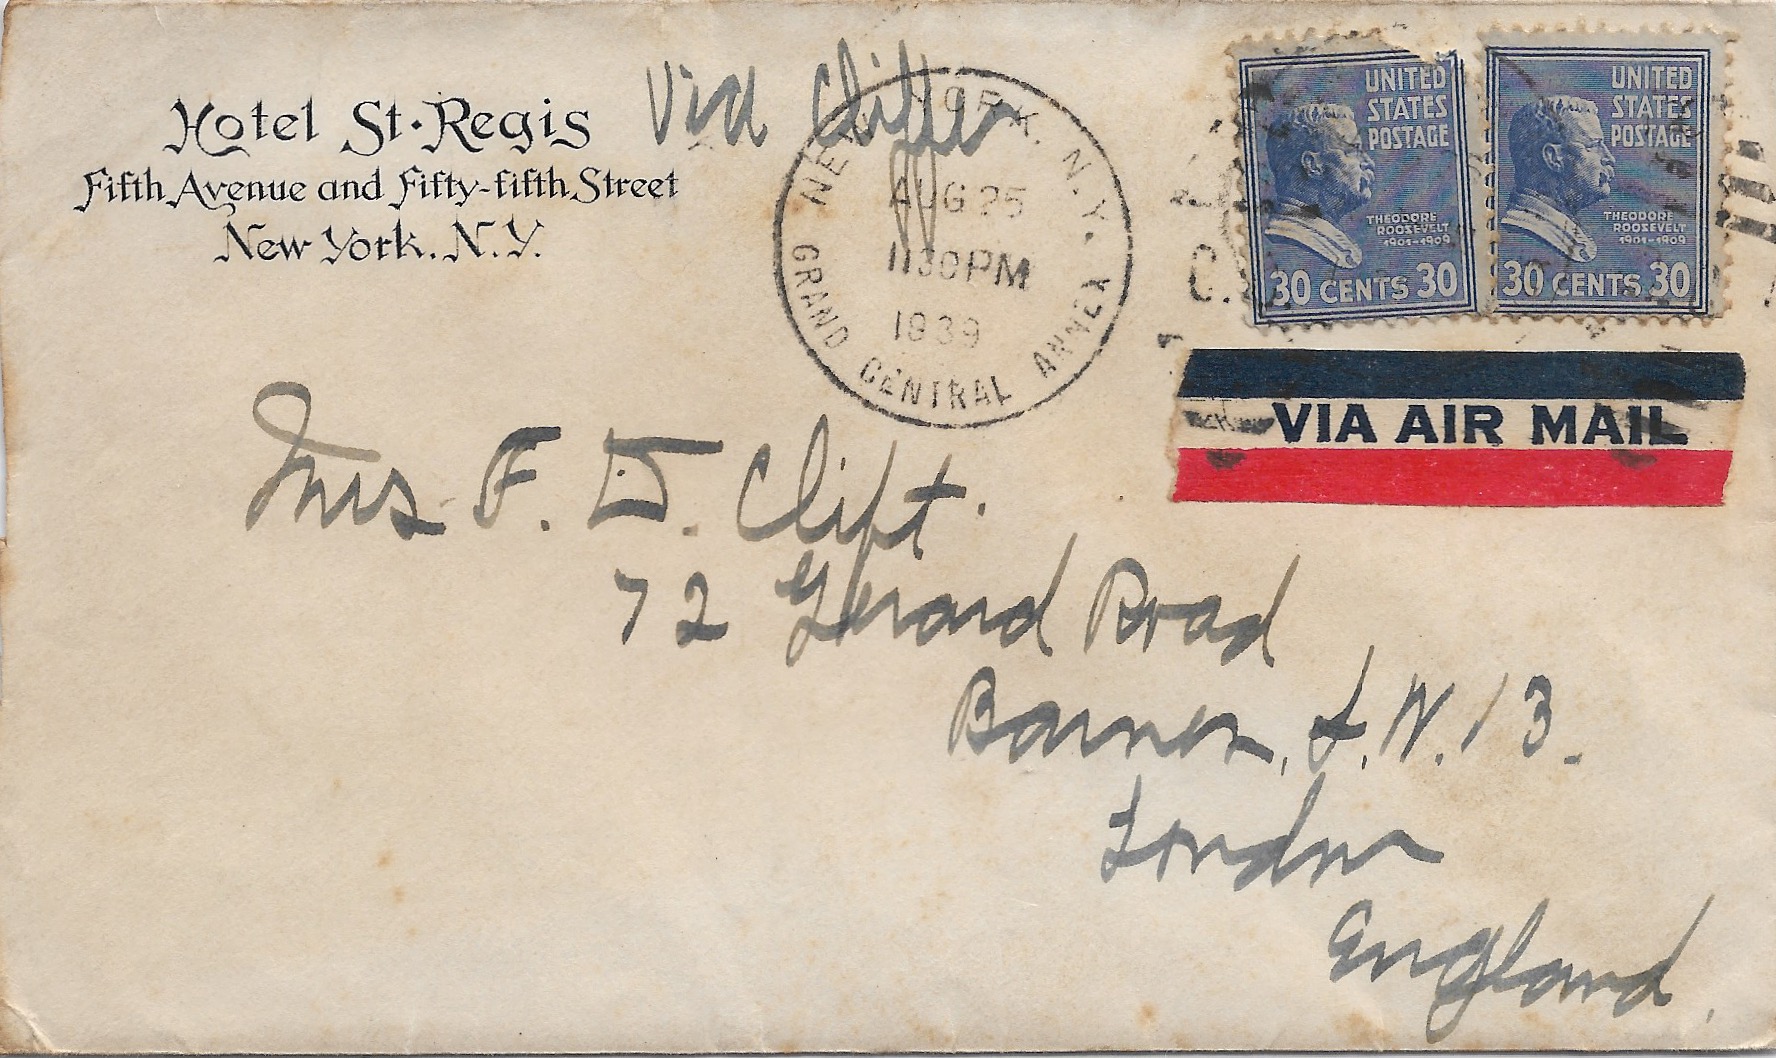 Hotel St. Regis
Fifth Avenue and Fifty-fifth Street
New York. N.Y.
Via Clipper
NEW YORK, N.Y.
AUG 25
1130 PM
1939
GRAND CENTRAL ANNEX
UNITED
STATES
POSTAGE
THEODORE
ROOSEVELT
1901-1909
30 CENTS 30
UNITED
STATES
POSTAGE
THEODORE
ROOSEVELT
1901-1909
30 CENTS 30
VIA AIR MAIL
Mrs F. D. Clift.
72 Gerard Road
Barnes, S.W. 13.
London
England.